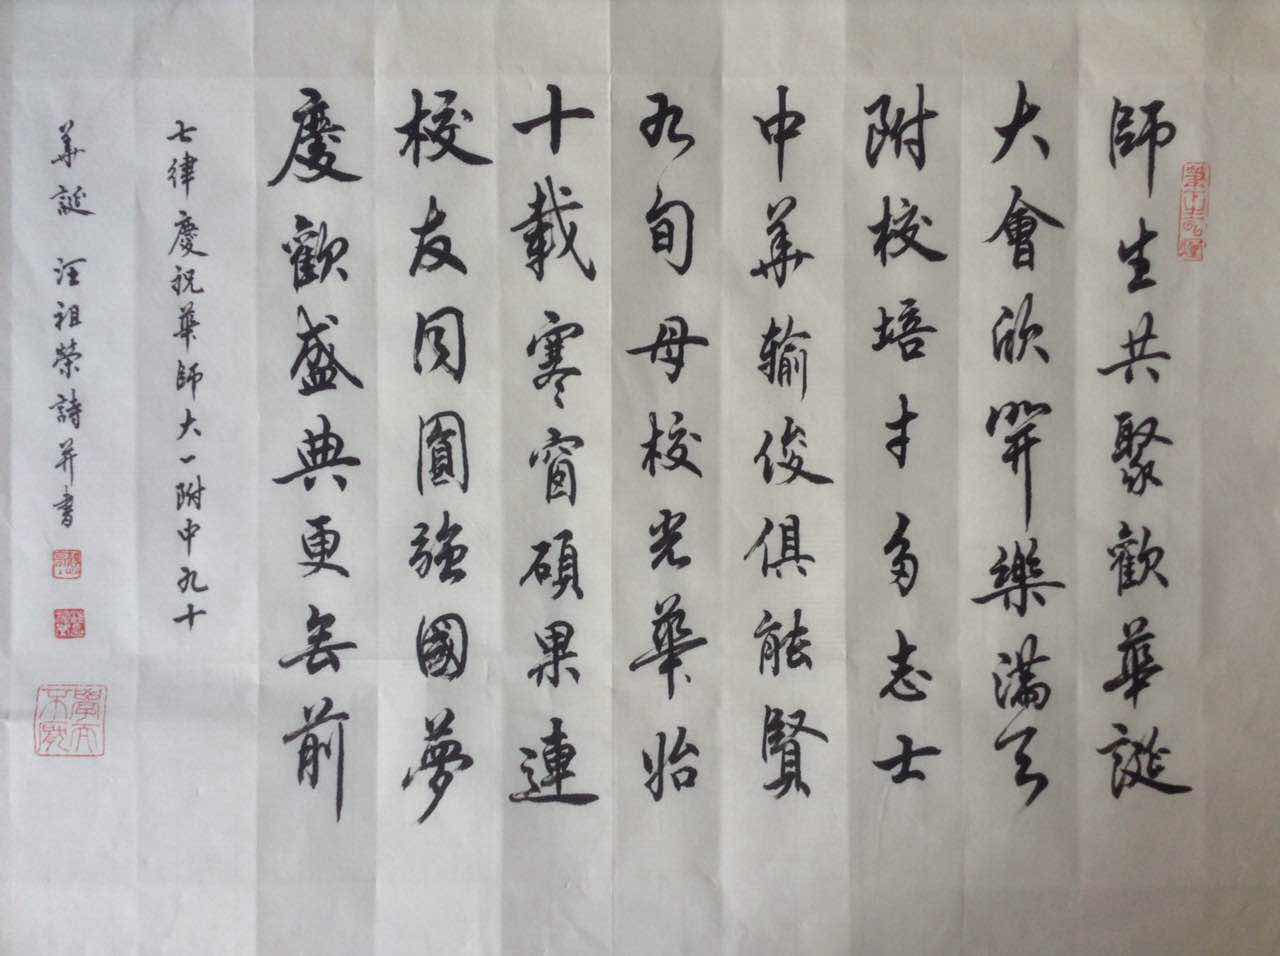 師生共聚歡華誕
大會欣開樂滿天
附校培才多志士
中華輸俊俱能賢
九旬母校光華始
十載寒窗碩果連
校友同圓強國夢
慶歡盛典更無前
七律慶祝華師大一附中九十
華誕 汪祖榮詩并書